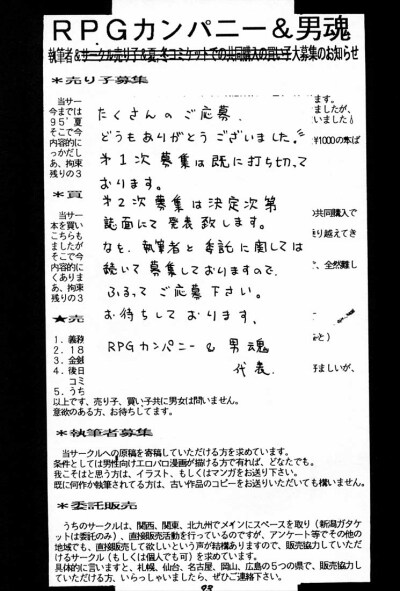 RPGカンパニー&男魂
執筆者&サークル売り子&夏,冬コミケットでの共同購入の買い子大募集のお知らせ
*売り子募集
当サー
今までは
95′夏
そこで今
内容的に
っかだし
あ、拘束
残りの3
*買
当サー
本を買い
こちらも
ましたが
そこで今
内容的に
くありま
あ、拘束
残りの3
★売
1. 義務
2. 18
3. 金銭
4. 後日
コミ
5. うち
たくさんのご応募、
どうもありがとうございました!!
第1次募集は既に打ち切って
おります。
第2次募集は決定次第
誌面にて発表致します。
なを、執筆者と委託に関しては
続いて募集しておりますので、
ふるってご応募下さい。
お待ちしております、
RPGカンパニー & 男魂
代表.
ます。
ましたが、
ました!
¥1000の
の共同購入で
乗り越えてき
で、全然難し
と)
ましいが、
以上です、売り子、買い子共に男女は問いません。
意欲のある方、お待ちしてます。
*執筆者募集
当サークルへの原稿を寄稿していただける方を求めています。
条件としては男性向けエロパロ漫画が描ける方で有れば、どなたでも。
我こそはと思う方は、イラスト、もしくはマンガをお送り下さい。
既に何作か執筆されてる方は、古い作品のコピーをお送りいただいても構いません。
*委託販売
うちのサークルは、関西、関東、北九州でメインにスペースを取り(新潟ガタケ
ットは委託のみ)、直接販売活動を行っているのですが、アンケート等でその他の
地域でも、直接販売して欲しいという声が結構ありますので、販売協力していただ
けるサークル(もしくは個人でも可)を求めています。
具体的に言いますと、札幌、仙台、名古屋、岡山、広島の5つの県で、販売協力し
ていただける方、いらっしゃいましたら、ぜひご連絡下さい。
93